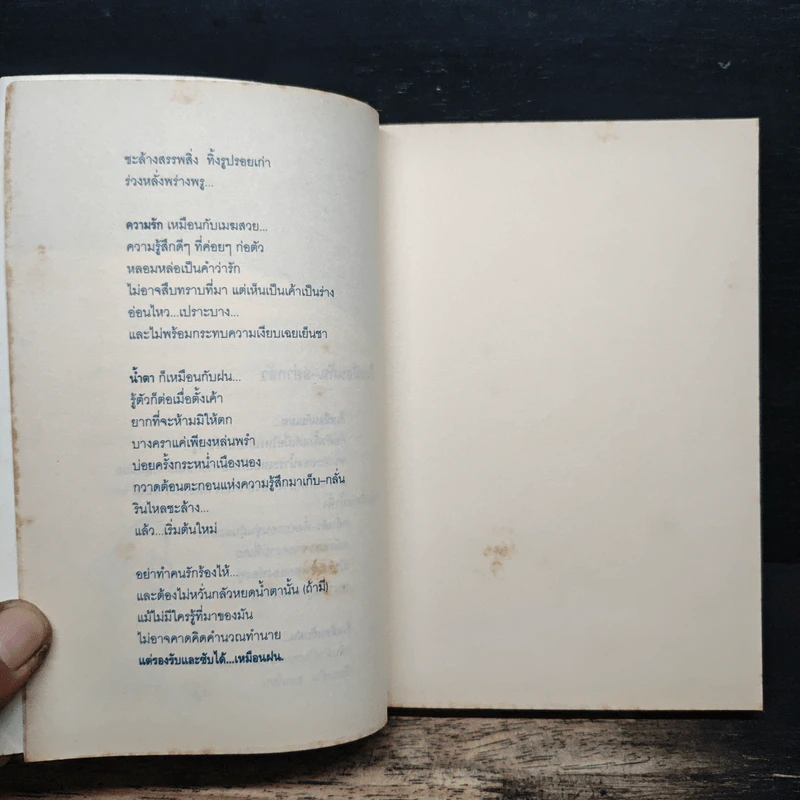 ชะล้างสรรพสิ่ง ทิ้งรูปรอยเก่า
ร่วงหลั่งพร่างพรู...
ความรัก เหมือนกับเมฆสวย...
ความรู้สึกดีๆ ที่ค่อยๆ ก่อตัว
หลอมหล่อเป็นคำว่ารัก
ไม่อาจสืบทราบที่มา แต่เห็นเป็นเค้าเป็นร่าง
อ่อนไหว...เปราะบาง...
และไม่พร้อมกระทบความเงียบเฉยเย็นชา
น้ำตา ก็เหมือนกับฝน...
รู้ตัวก็ต่อเมื่อตั้งเค้า
ยากที่จะห้ามมิให้ตก
บางคราแค่เพียงหล่นพรำ
บ่อยครั้งกระหน่ำเนืองนอง
กวาดต้อนตะกอนแห่งความรู้สึกมาเก็บ-กลั่น
รินไหลชะล้าง...
แล้ว...เริ่มต้นใหม่
อย่าทำคนรักร้องไห้...
และต้องไม่หวั่นกลัวหยดน้ำตานั้น (ถ้ามี)
แม้ไม่มีใครรู้ที่มาของมัน
ไม่อาจคาดคิดคำนวณทำนาย
แต่รองรับและซับได้...เหมือนฝน.